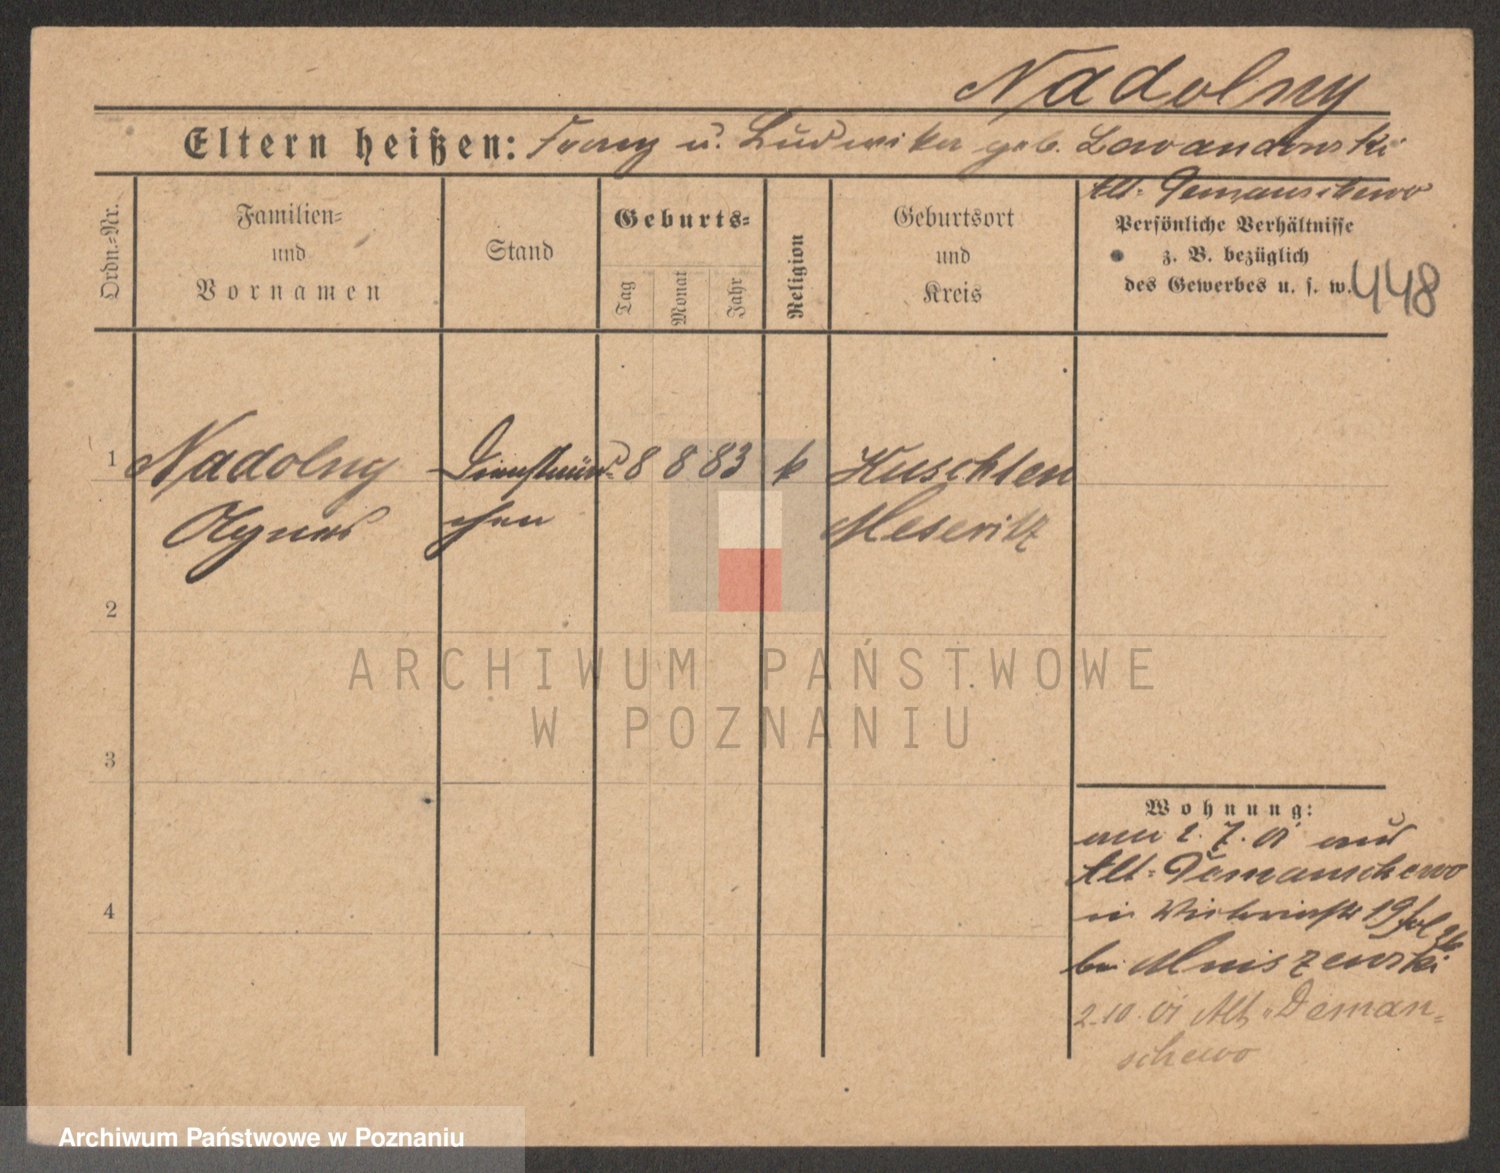 Nadolny
Eltern heißen: Franz u. Ludwika geb. Lewandowski
Alt-Demanschewo
Ordn.-Nr.
Familien-
und
Vornamen
Stand
Geburts-
Tag
Monat
Jahr
Religion
Geburtsort
und
Kreis
Persönliche Verhältnisse
z. B. bezüglich
des Gewerbes u. s. w.
448
1 Nadolny Dienstmäd- 8 8 83 k Kuschten
Agnes chen Meseritz
2
3
4
ARCHIWUM PAŃSTWOWE
W POZNANIU
Wohnung:
am 2.7.01 aus
Alt-Demanschewo
in 19
bei Mniszewski
2.10.01 Alt-Deman-
schewo
Archiwum Państwowe w Poznaniu